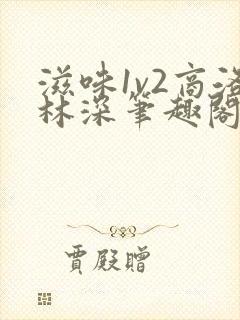 滋味1v2高洛
林深笔趣阁
贾殿赠